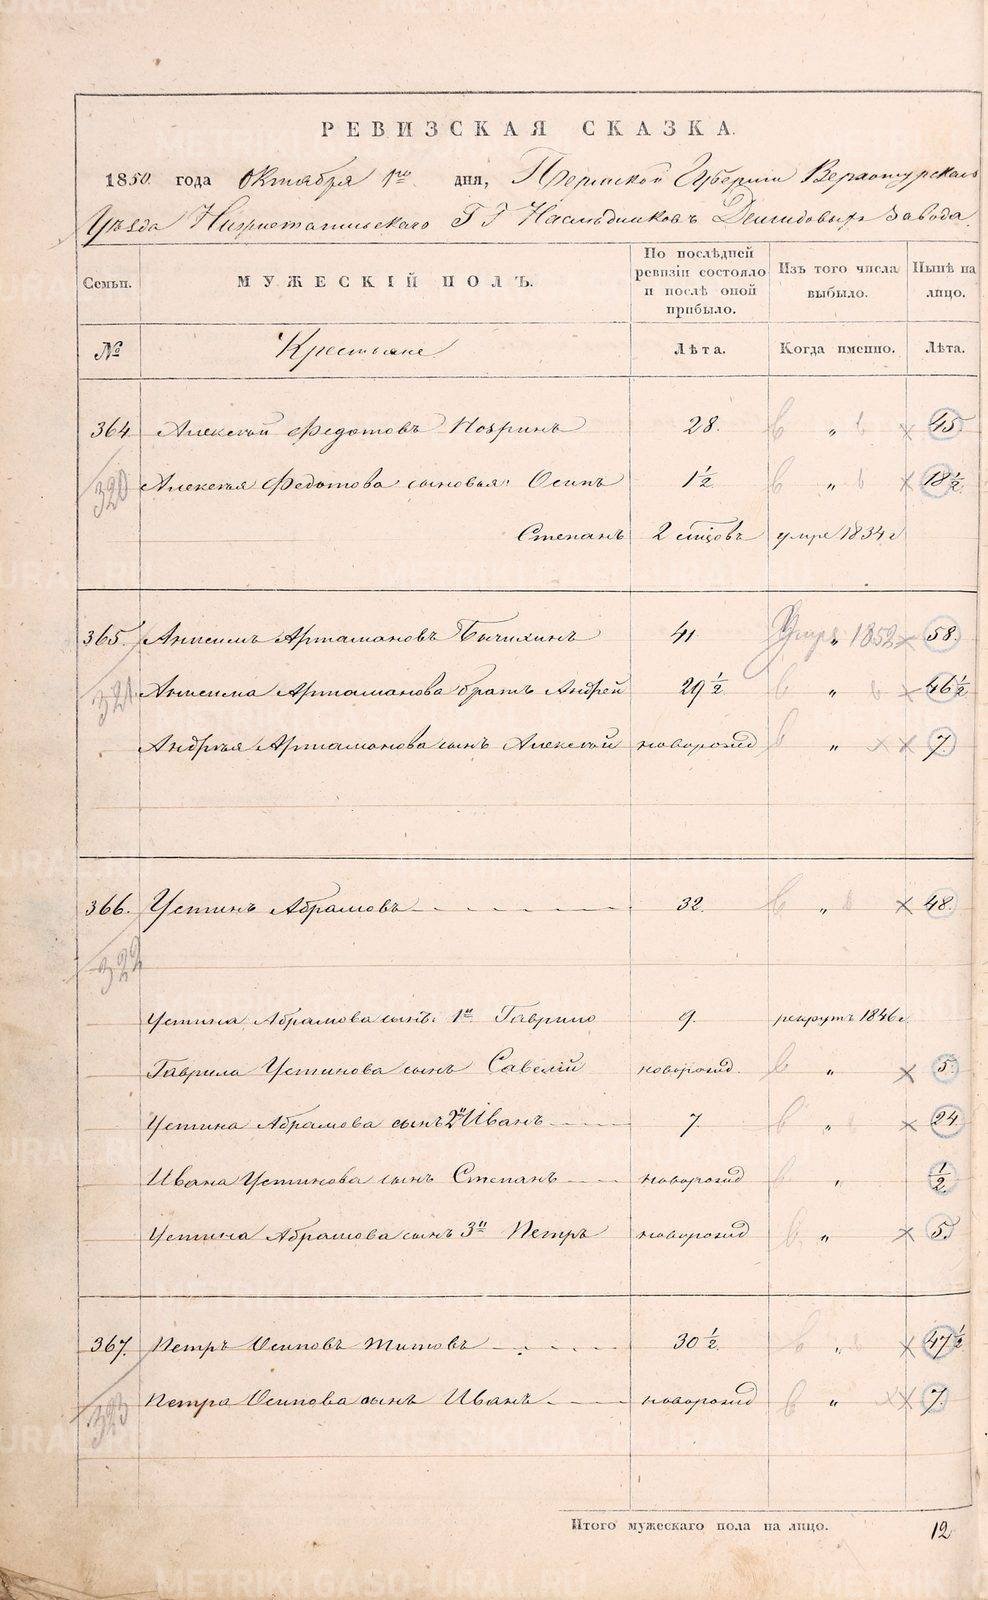 РЕВИЗСКАЯ СКАЗКА.
1850. года Октября 1го дня, Пермской Губернии Верхотурскаго
Уѣзда Нижнетагильскаго Г Г Наслѣдниковъ Демидовыхъ завода
Семьи. МУЖЕСКІЙ ПОЛЪ. По послѣдней ревизіи состояло и послѣ оной прибыло. Изъ того числа выбыло. Нынѣ на лицо.
№ Крестьяне Лѣта. Когда именно. Лѣта.
364 Алексѣй Федотовъ 28. " 45
320 Алексѣя Федотова сыновья: Осипъ 1½ " 18½
Степанъ 2 умре 1834 г
365. Анисимъ Артамоновъ Бычихинъ 41 Умре " 1852 58.
321 Анисима Артамонова братъ Андрей 29½ " 46½
Андрѣя Артамонова сынъ Алексѣй новорожд " 7.
366. Устинъ Абрамовъ 32. " 48.
322
Устина Абрамова сынъ 1й Гаврило 9. рекрутъ 1846 г
Гаврила Устинова сынъ Савелій новорожд. " 5.
Устина Абрамова сынъ 2й Иванъ 7 " 24.
Ивана Устинова сынъ Степанъ новорожд " ½
Устина Абрамова сынъ 3й Петръ новорожд " 5.
367. Петръ Осиповъ Титовъ 30½. " 47½
323 Петра Осипова сынъ Иванъ новорожд " 7.
Итого мужескаго пола на лицо. 12
METRIKI.GASO-URAL.RU